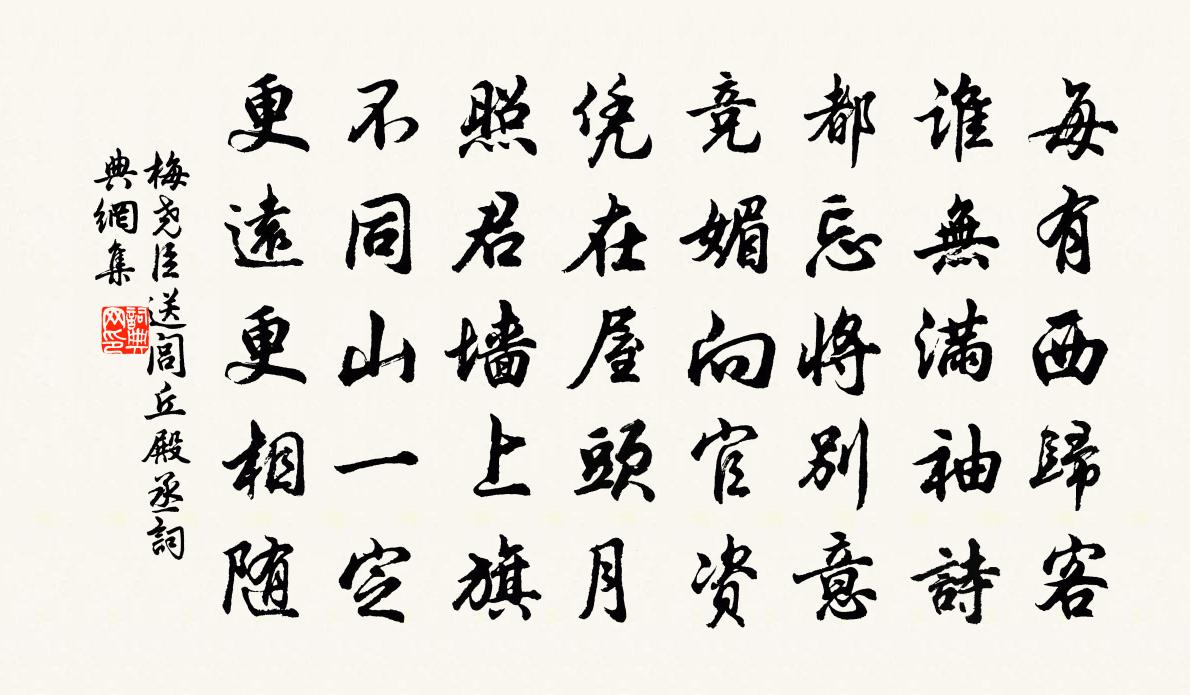 每有西歸客
誰無滿袖詩
都忘將別意
竞媚向官资
凭在屋頭月
照君墙上旗
不同山一定
更遠更相随
梅尧臣送閭丘殿丞詞
典網集
詞典网印